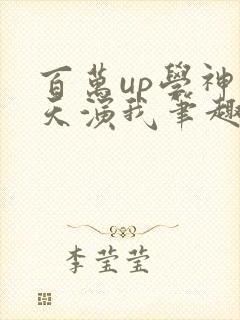 百萬up學神
天演我筆趣
李莹莹